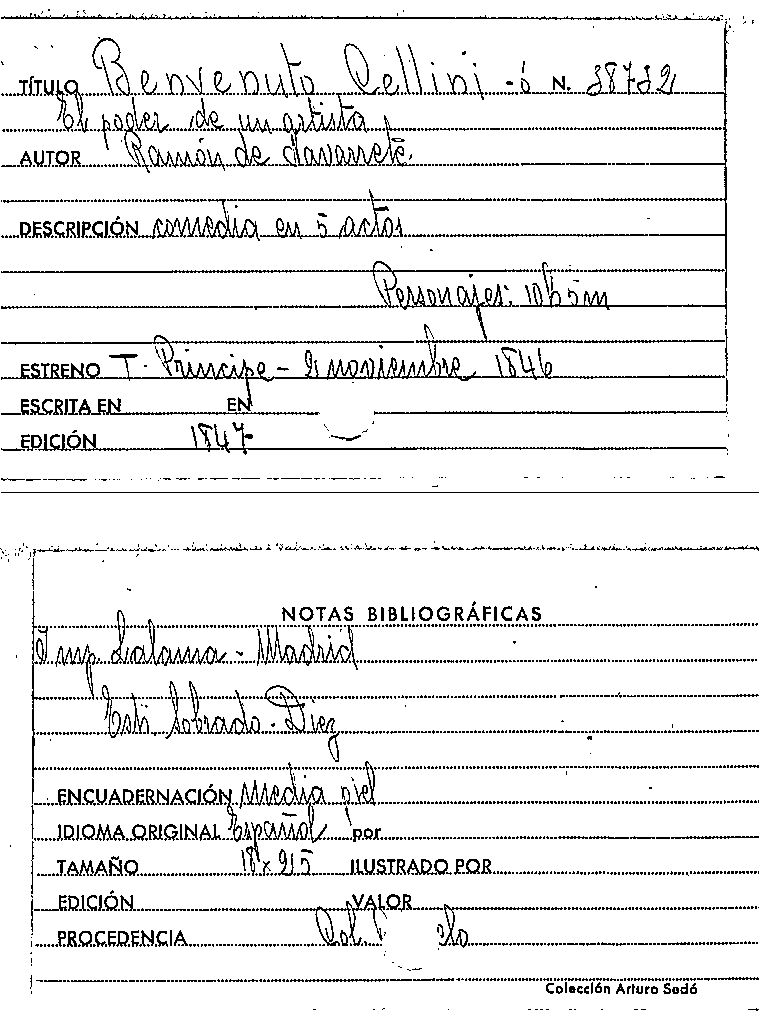 TÍTULO Benvenuto Cellini - ó N. 38732
El poder de un artista
AUTOR Ramón de Navarrete.
DESCRIPCIÓN comedia en 5 actos
Personajes: 10h 5m
ESTRENO T. Principe - 2 noviembre 1846
ESCRITA EN EN
EDICIÓN 1847
NOTAS BIBLIOGRÁFICAS
Imp Lalama - Madrid
Sobrado - Diez
ENCUADERNACIÓN Media piel
IDIOMA ORIGINAL Español por
TAMAÑO ILUSTRADO POR
EDICIÓN VALOR
PROCEDENCIA Col.
Colección Arturo Sedó